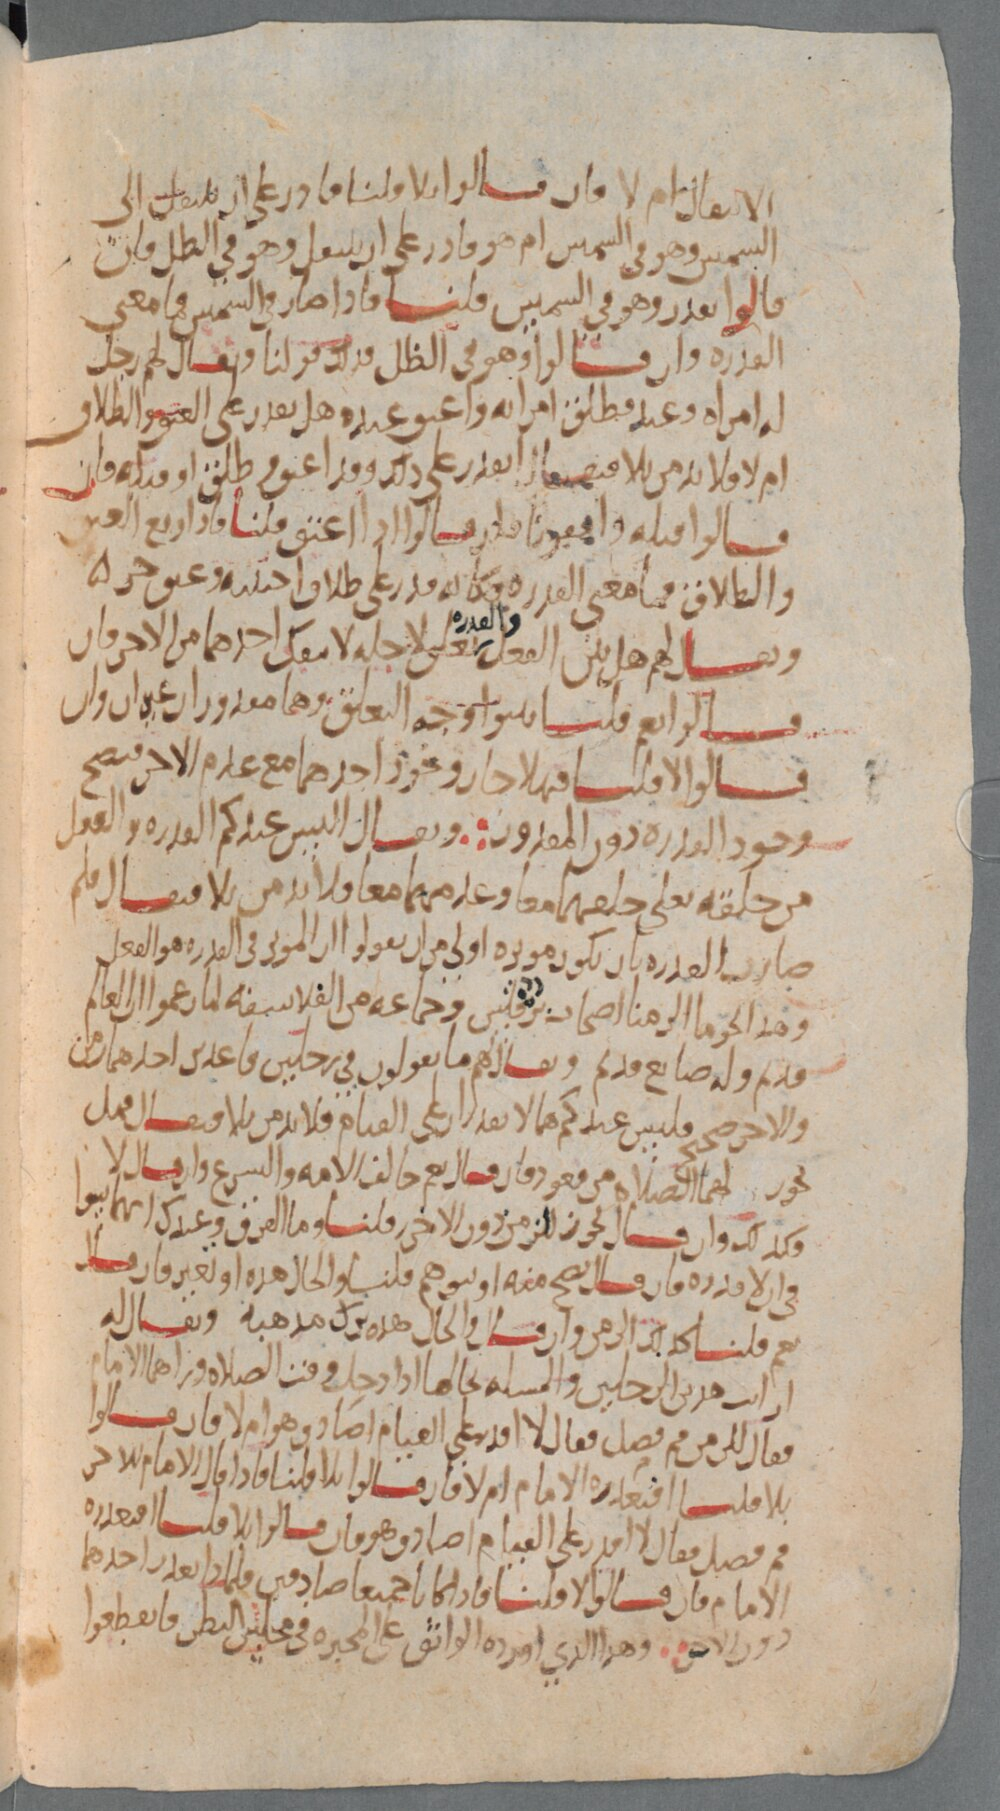 الانتقال ام لا فان قالوا بلا قلنا قادر على ان ينتقل الى
الشمس وهو في الشمس ام هو قادر على ان ينتقل وهو في الظل فان
قالوا يقدر وهو في الشمس قلنا فاذا صار في الشمس فما معنى
القدره وان قالوا وهو في الظل فذلك قولنا ويقال لهم رجل
له امراه وعبد فطلق امراته واعتق عبده هل يقدر على العتق والطلاق
ام لا فلا بد من بلا فيقال ايقدر على ذلك وقد اعتق وطلق او قبله فان
قالوا قبله وافقونا وان قالوا اذا اعتق قلنا فاذا وقع العتق
والطلاق فما معنى القدره وكانه قدر على طلاق اجنبيه وعتق حر
ويقال لهم هل بين الفعل والقدره تعلق لاجله لا ينفك احدهما من الاخر فان
قالوا نعم قلنا بينوا وجه التعلق وهما مقدوران غيران وان
قالوا لا قلنا فهلا جاز وجود احدهما مع عدم الاخر فيصح
وجود القدره دون المقدور ويقال اليس عندكم القدره والفعل
من خلقه تعالى خلقهما معا وعدمهما معا فلا بد من بلا فيقال فلم
صارت القدره بان تكون موثره اولى من ان يقولوا ان الموثر في القدره هو الفعل
وهذا نحو ما الزمنا اصحاب برقلس وجماعه من الفلاسفه لما زعموا ان العالم
قديم وله صانع قديم ويقال لهم ما يقولون في رجلين قاعدين احدهما زمن
والاخر صحيح فليس عندكم هما لا يقدران على القيام فلا بد من بلا فيقال فهل
يجوز لهما الصلاه من قعود فان قال نعم خالف الامه والشرع وان قال لا
فكذلك وان قال يجوز للزمن دون الاخر قلنا وما الفرق وعندك انهما سوا
في ان لا قدره فان قال يصح منه او يتوهم قلنا والحال هذه او تغير فان قال
نعم قلنا كذلك الزمن وان قال في الحال هذه ترك مذهبه ويقال له
ارايت هذين الرجلين والمسله بحالها اذا دخل وقت الصلاه وراهما الامام
فقال للزمن قم فصل فقال لا اقدر على القيام اصادق هو ام لا فان قالوا
بلا قلنا افيعذره الامام ام لا فان قالوا بلا قلنا فاذا قال الامام للاخر
قم فصل فقال لا اقدر على القيام اصادق هو فان قالوا بلا قلنا افيعذره
الامام فان قالوا لا قلنا فاذا كانا جميعا صادقين فلماذا يعذر احدهما
دون الاخر وهذا الذي اورده الواثق على المجبره في مجلس النظر فانقطعوا